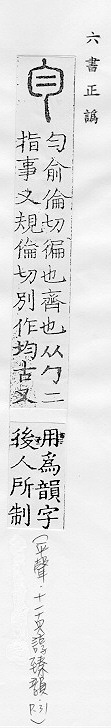 六書正譌
勻俞倫切徧也齊也从勹二
指事又規倫切別作均古又
用為韻字
後人所制
(平聲·十一真諄臻韻·P.31)